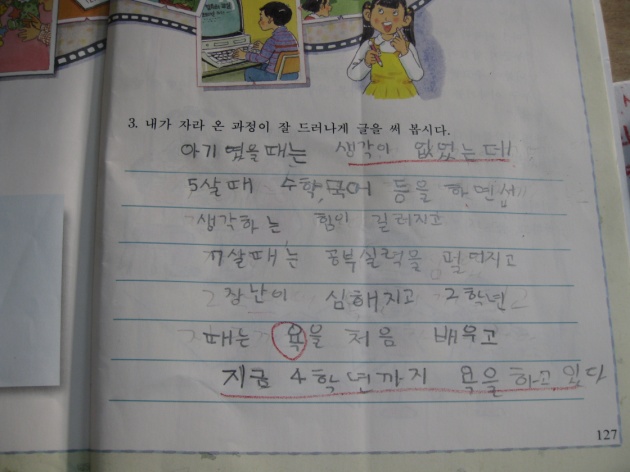 3. 내가 자라 온 과정이 잘 드러나게 글을 써 봅시다.
아기 였을때는 생각이 없었는데!
5살때 수학,국어 등을 하면서
생각하는 힘이 길러지고
7살때는 공부실력을
장난이 심해지고 2학년
때는 욕을 처음 배우고
지금 4학년까지 욕을 하고 있다
127